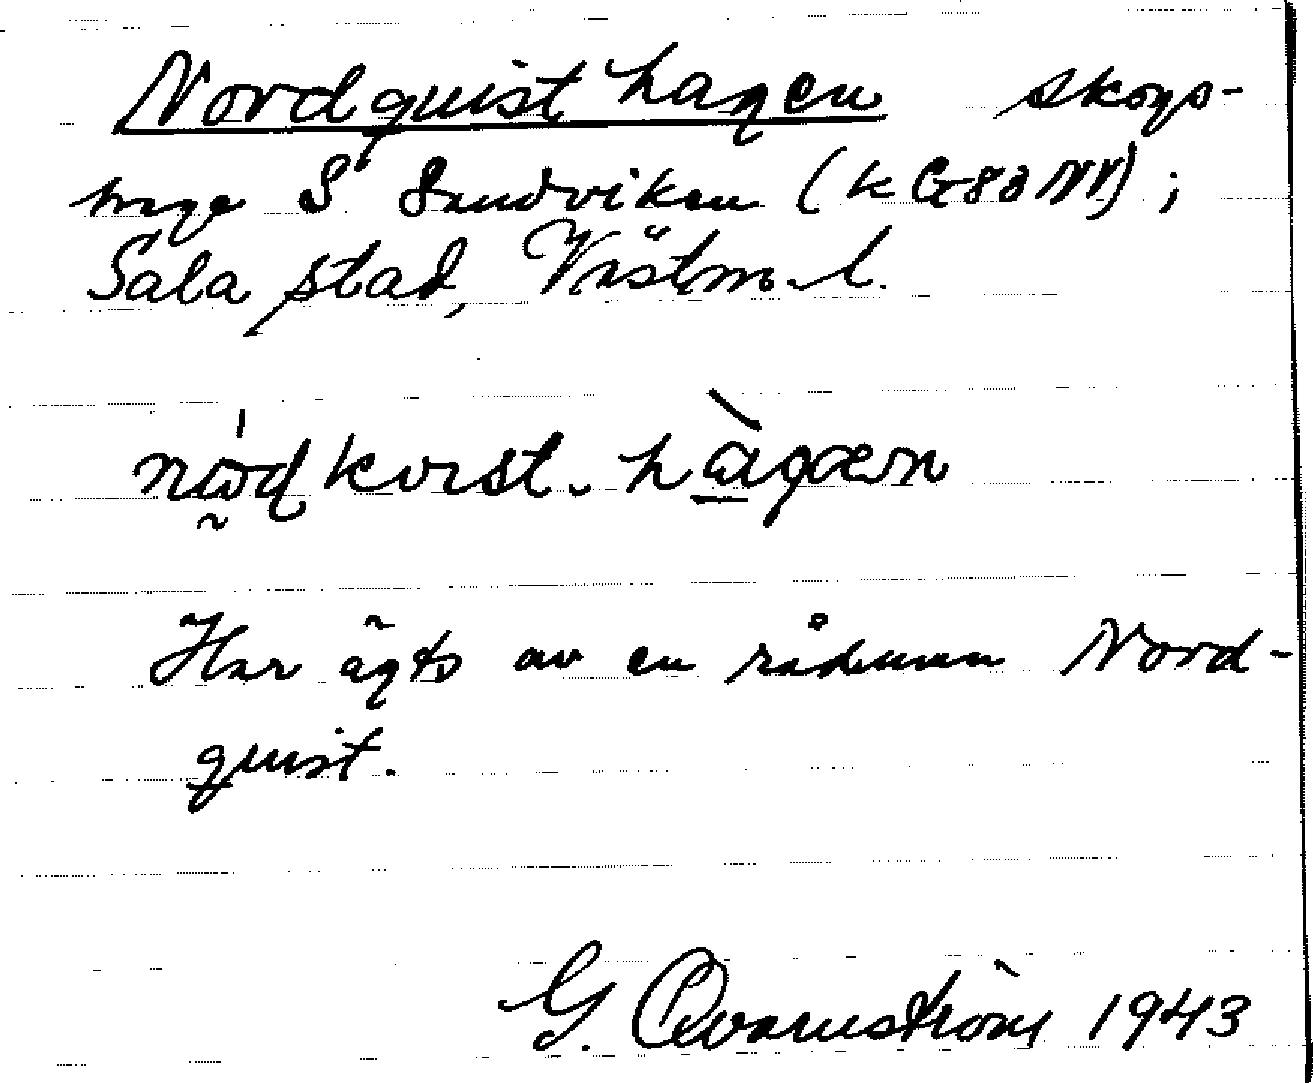 Nordquisthagen skogs-
hage S Sandviken (k G8d NV);
Sala stad, Västm. l.
nὼɖkvɪst-hàgæn
Har ägts av en rådman Nord-
quist.
G. Qvarnström 1943